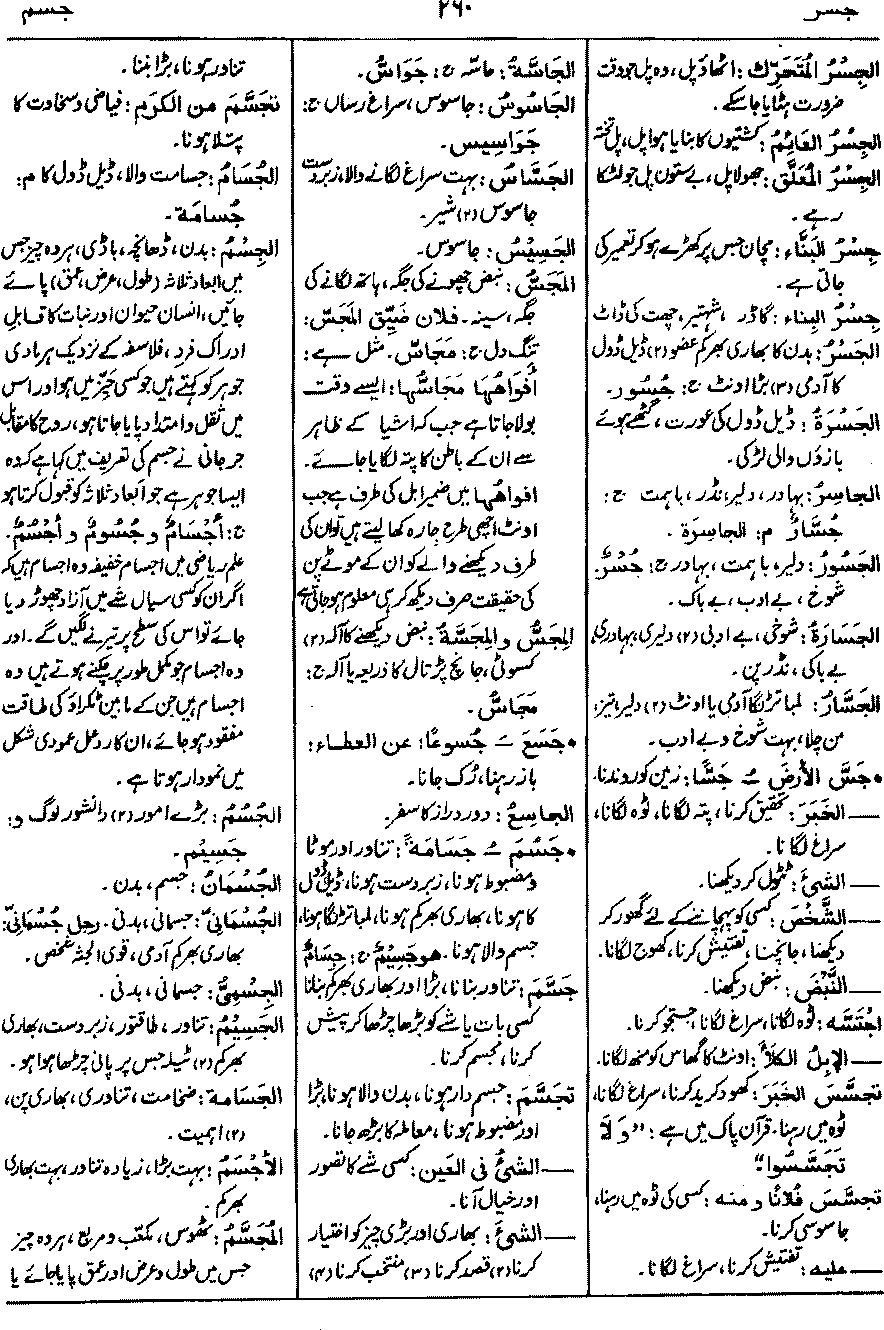 جسر
۲۶۰
جسم
الجِسْرُ المُتَحَرِّك: اٹھاؤ پل، وہ پل جو وقت
ضرورت ہٹایا جاسکے۔
الجِسْرُ العَائِمُ: کشتیوں کا بنایا ہوا پل، پل تختہ
الجِسْرُ المُعَلَّق: جھولا پل، بے ستون پل جو لٹکا
رہے۔
جِسْرُ البَنَّاء: مچان جس پر کھڑے ہو کر تعمیر کی
جاتی ہے۔
جِسْرُ البِناء: گاڈر، شہتیر، چھت کی ڈاٹ
الجَسْرُ: بدن کا بھاری بھرکم عضو (۲) ڈیل ڈول
کا آدمی (۳) بڑا اونٹ ج: جُسُور۔
الجَسْرَةُ: ڈیل ڈول کی عورت، گٹھے ہوئے
بازوں والی لڑکی۔
الجاسِرُ: بہادر، دلیر، نڈر، باہمت ج:
جُسَّارٌ م: الجاسِرَة۔
الجَسُورُ: دلیر، باہمت، بہادر ج: جُسُرٌ۔
شوخ، بے ادب، بے باک۔
الجَسَارَةُ: شوخی، بے ادبی (۲) دلیری، بہادری،
بے باکی، نڈر پن۔
الجَسَّارُ: لمبا تڑنگا آدمی یا اونٹ (۲) دلیر، تیز،
من چلا، بہت شوخ و بے ادب۔
• جَسَّ الأرْضَ ـُ جَسًّا: زمین کو روندنا۔
— الخَبَرَ: تحقیق کرنا، پتہ لگانا، ٹوہ لگانا،
سراغ لگانا۔
— الشیْءَ: ٹٹول کر دیکھنا۔
— الشَّخْصَ: کسی کو پہچاننے کے لئے گھور کر
دیکھنا، جانچنا، تفتیش کرنا، کھوج لگانا۔
— النَّبْضَ: نبض دیکھنا۔
اجْتَسَّه: ٹوہ لگانا، سراغ لگانا، جستجو کرنا۔
— الإبِلُ الکَلأَ: اونٹ کا گھاس کو منھ لگانا۔
تَجَسَّسَ الخَبَرَ: کھود کرید کرنا، سراغ لگانا،
ٹوہ میں رہنا، قرآن پاک میں ہے: "وَ لَا
تَجَسَّسُوا"
تَجسَّسَ فُلانًا و منه: کسی کی ٹوہ میں رہنا،
جاسوسی کرنا۔
— علیه: تفتیش کرنا، سراغ لگانا۔
الجَاسَّةُ: حاسہ ج: جَوَاسُّ۔
الجَاسُوسُ: جاسوس، سراغ رساں ج:
جَوَاسِیس۔
الجَسَّاسُ: بہت سراغ لگانے والا، زبردست
جاسوس (۲) شیر۔
الجَسِیْسُ: جاسوس۔
المَجَسُّ: نبض چھونے کی جگہ، ہاتھ لگانے کی
جگہ، سینہ۔ فلان ضَیِّقِ المَجَسِّ:
تنگ دل ج: مَجَاسُّ۔ مثل ہے:
أفْوَاهُهَا مَجَاسُّها: ایسے وقت
بولا جاتا ہے جب کہ اشیا کے ظاہر
سے ان کے باطن کا پتہ لگایا جائے۔
افواهُها میں ضمیر ابل کی طرف ہے جب
اونٹ اچھی طرح چارہ کھا لیتے ہیں تو ان کی
طرف دیکھنے والے کو ان کے موٹے پن
کی حقیقت صرف دیکھ کر ہی معلوم ہو جاتی ہے
المِجَسُّ والمِجَسَّة: نبض دیکھنے کا آلہ (۲)
کسوٹی، جانچ پڑتال کا ذریعہ یا آلہ ج:
مَجَاسُّ۔
• جَسَعَ ـَ جُسوعًا: عن العطاء:
باز رہنا، رُک جانا۔
الجاسِعُ: دور دراز کا سفر۔
• جَسُمَ ـُ جَسَامَةً: تناور اور موٹا
و مضبوط ہونا، زبردست ہونا، ڈیل ڈول
کا ہونا، بھاری بھرکم ہونا، لمبا تڑنگا ہونا،
جسم والا ہونا۔ هوجَسِیْمٌ ج: جِسَامٌ
جَسَّمَ: تناور بنانا، بڑا اور بھاری بھرکم بنانا
کسی بات یا شے کو بڑھا چڑھا کر پیش
کرنا، تجسم کرنا۔
تَجَسَّمَ: جسم دار ہونا، بدن والا ہونا، بڑا
اور مضبوط ہونا، معاملہ کا بڑھ جانا۔
— الشیْءُ فی العَین: کسی شے کا تصور
اور خیال آنا۔
— الشیْءَ: بھاری اور بڑی چیز کو اختیار
کرنا (۲) قصد کرنا (۳) منتخب کرنا (۴)
تناور ہونا، بڑا بننا۔
تَجَسَّمَ من الکَرَم: فیاضی و سخاوت کا
پتلا ہونا۔
الجُسَامُ: جسامت والا، ڈیل ڈول کا م:
جُسامَة۔
الجِسْمُ: بدن، ڈھانچہ، باڈی، ہر وہ چیز جس
میں ابعاد ثلاثہ (طول، عرض، عمق) پائے
جائیں، انسان حیوان اور نبات کا قابل
ادراک فرد، فلاسفہ کے نزدیک ہر مادی
جوہر کو کہتے ہیں جو کسی حَیِّز میں ہو اور اس
میں ثقل و امتداد پایا جاتا ہو، روح کا مقابل
جرجانی نے جسم کی تعریف میں کہا ہے کہ وہ
ایسا جوہر ہے جو اَبعاد ثلاثہ کو قبول کرتا ہو
ج: أجْسَامٌ و جُسُومٌ و أجْسُمٌ۔
علم ریاضی میں اجسام خفیفہ وہ اجسام ہیں کہ
اگر ان کو کسی سیال شے میں آزاد چھوڑ دیا
جائے تو اس کی سطح پر تیرنے لگیں گے۔ اور
وہ اجسام جو مکمل طور پر چکنے ہوتے ہیں وہ
اجسام ہیں جن کے مابین ٹکراؤ کی طاقت
مفقود ہو جائے، ان کا رد عمل عمودی شکل
میں نمودار ہوتا ہے۔
الجُسُمُ: بڑے امور (۲) دانشور لوگ و:
جَسِیْم۔
الجُسْمَانُ: جسم، بدن۔
الجُسْمَانِیُّ: جسمانی، بدنی۔ رجل جُسْمَانِیٌّ:
بھاری بھرکم آدمی، قوی الجثہ شخص۔
الجِسْمِیُّ: جسمانی، بدنی۔
الجَسِیْمُ: تناور، طاقتور، زبردست، بھاری
بھرکم (۲) ٹیلہ جس پر پانی چڑھا ہوا ہو۔
الجَسَامة: ضخامت، تناوری، بھاری پن،
(۲) اہمیت۔
الأجْسَمُ: بہت بڑا، زیادہ تناور، بہت بھاری
بھرکم۔
المُجَسَّمُ: ٹھوس، مکعب و مربع، ہر وہ چیز
جس میں طول و عرض اور عمق پایا جائے یا